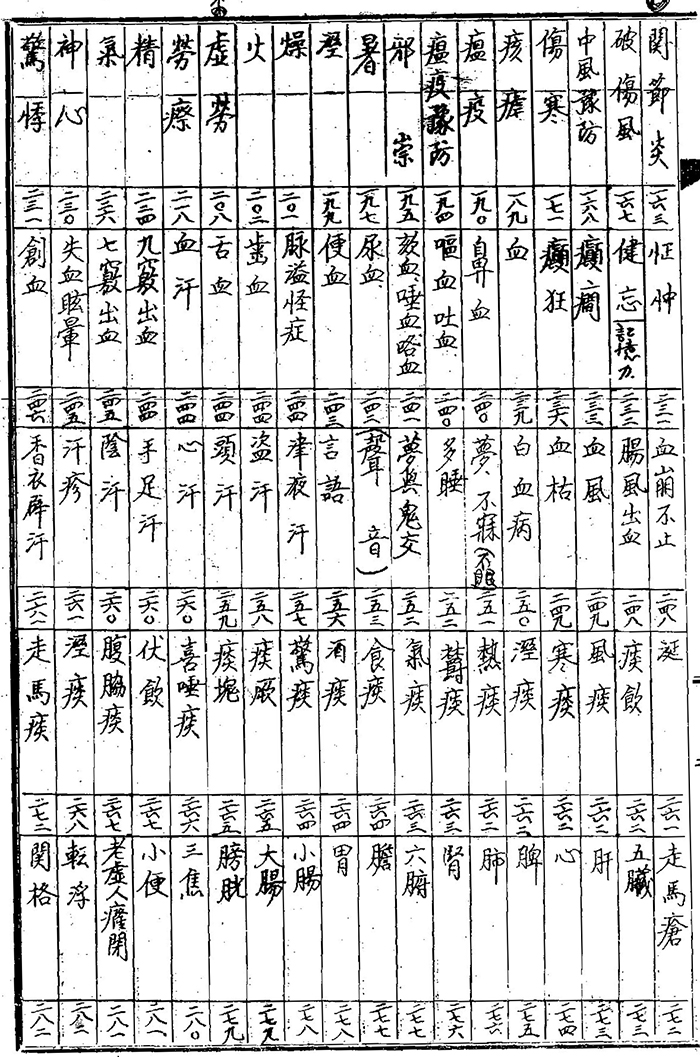 関節炎 一六三
破傷風 一六七
中風豫防 一六八
傷寒 一七一
痎瘧 一八九
瘟疫 一九〇
瘟疫豫防 一九四
邪祟 一九五
暑 一九七
溼 一九九
燥 二〇一
火 二〇二
虛勞 二〇八
勞瘵 二一八
精 二三四
氣 二三六
神心 二三〇
驚悸 二三一
怔忡 二三一
健忘 記憶力 二三二
癲癇 二三三
癲狂 二三六
血 二三九
鼻血 二四〇
嘔血吐血 二四〇
咳血唾血咯血 二四一
尿血 二四二
便血 二四三
脉溢怪症 二四四
齒血 二四四
舌血 二四四
血汗 二四四
九竅出血 二四四
七竅出血 二四五
失血眩暈 二四五
創血 二四六
血崩不止 二四八
腸風出血 二四八
血風 二四九
血枯 二四九
白血病 二五〇
夢、不寐(不眠) 二五一
多睡 二五二
夢與鬼交 二五二
(聲音) 二五三
言語 二五六
津夜汗 二五七
盜汗 二五八
頭汗 二五九
心汗 二六〇
手足汗 二六〇
陰汗 二六〇
汗疹 二六一
香衣屏汗 二六一
涎 二六一
痰飲 二六二
風痰 二六二
寒痰 二六二
溼痰 二六二
熱痰 二六二
鬱痰 二六三
氣痰 二六三
食痰 二六四
酒痰 二六四
驚痰 二六四
痰厥 二六五
痰塊 二六五
喜唾痰 二六六
伏飲 二六七
腹脇痰 二六七
溼痰 二六八
走馬痰 二七二
走馬瘡 二七二
五臟 二七三
肝 二七三
心 二七四
脾 二七五
肺 二七六
腎 二七六
六腑 二七七
膽 二七七
胃 二七八
小腸 二七八
大腸 二七九
膀胱 二七九
三焦 二八〇
小便 二八一
老虛人癃閉 二八一
転浮 二八二
関格 二八二